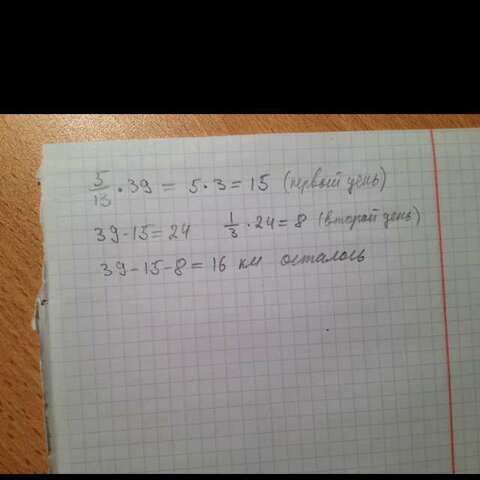 5/13 · 39 = 5 · 3 = 15 (первый день)
39 - 15 = 24 1/3 · 24 = 8 (второй день)
39 - 15 - 8 = 16 км осталось